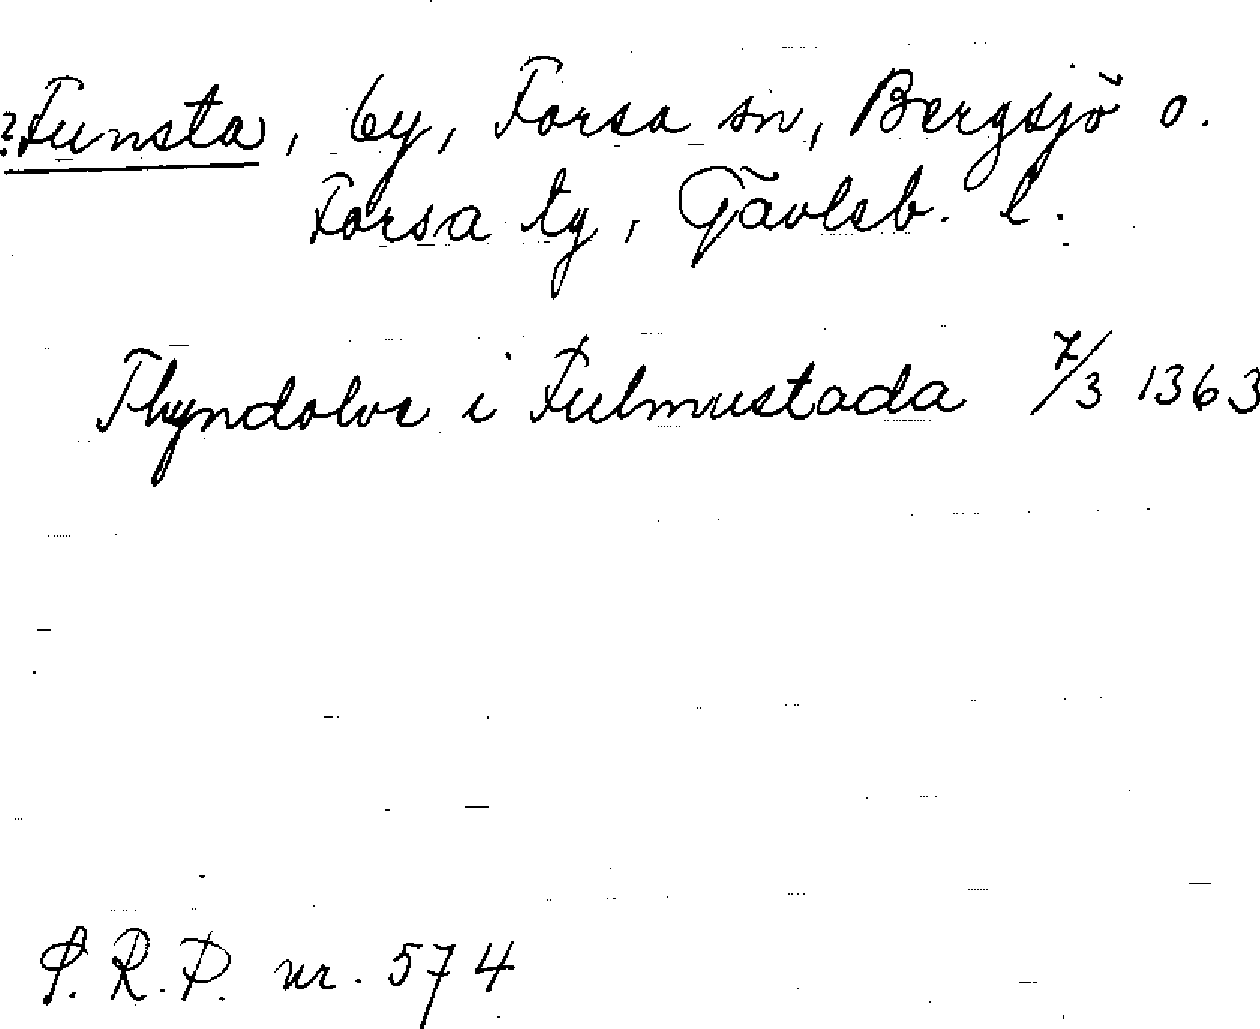 ?Funsta, by, Forsa sn, Bergsjö o.
Forsa tg, Gävleb. l.
Thyndolve i Fulmustada 7/3 1363
S.R.P. nr. 574